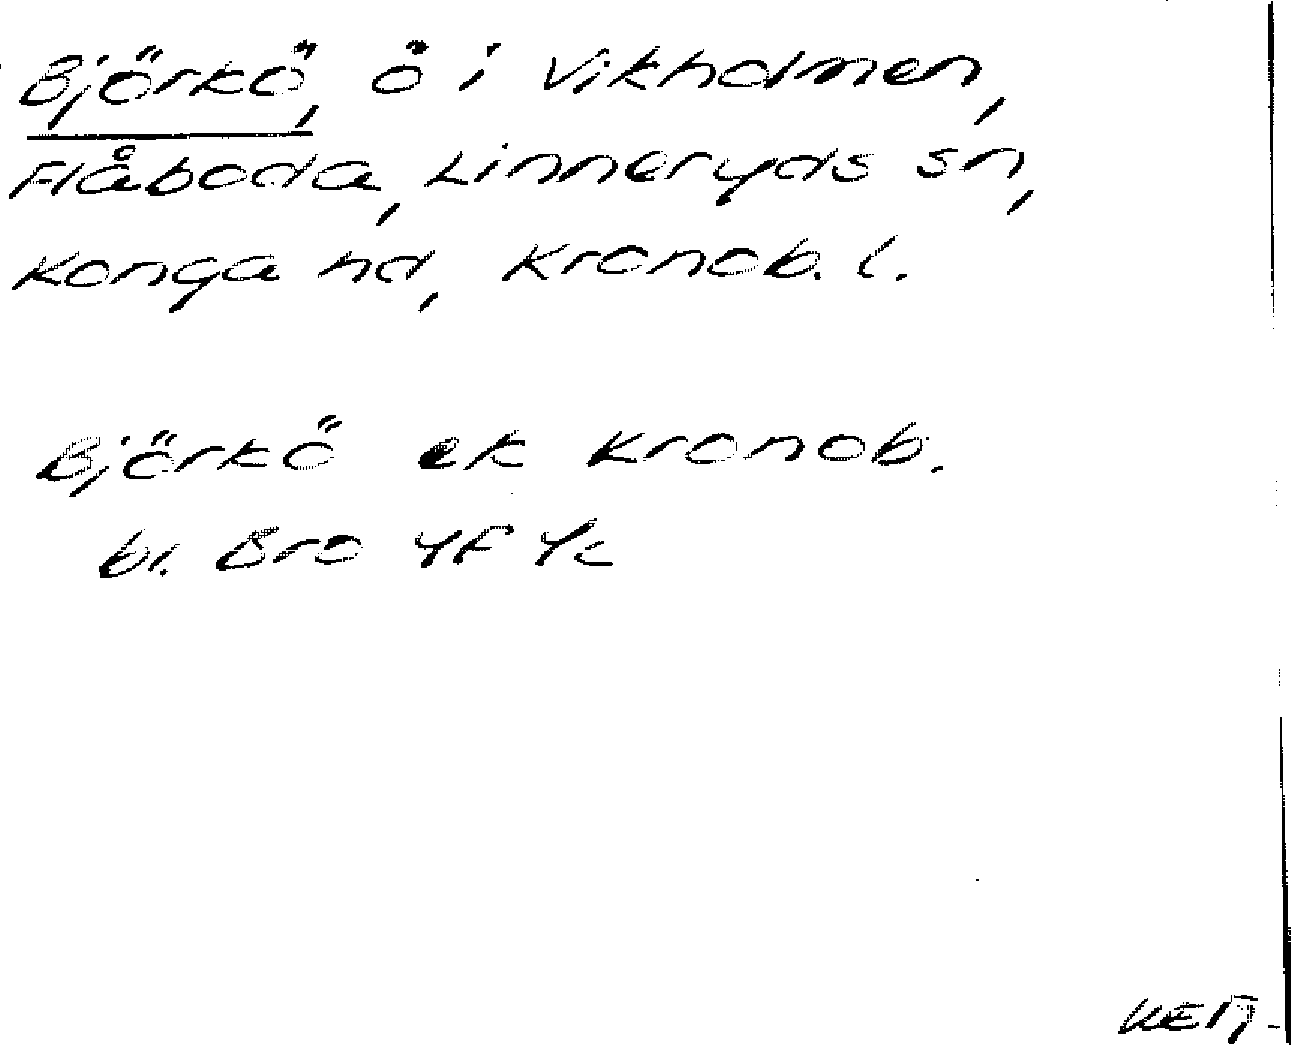 Björkö, ö i Vikholmen,
Flåboda, Linneryds sn,
Konga hd, Kronob. l.
Björkö ek Kronob.
bl. Bro 4F 4c